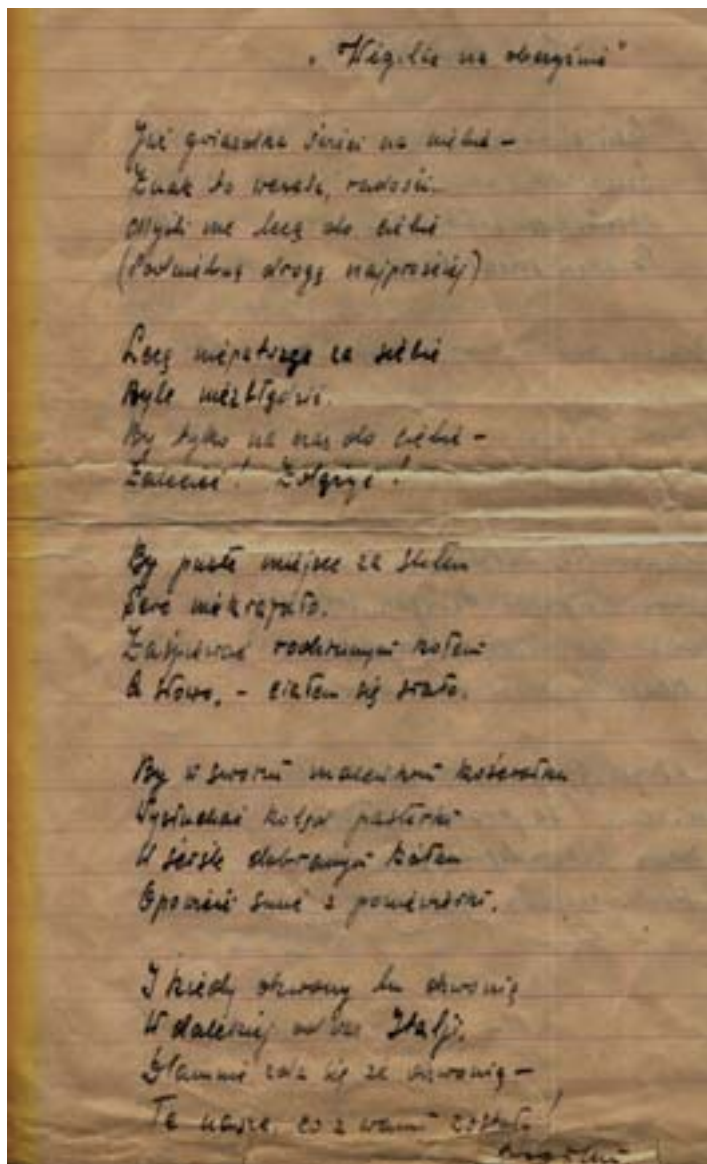 "Wigilia na obczyźnie"
Już gwiazdka świeci na niebie -
Znak to wesela, radości.
Myśli me lecą do ciebie
(Podniebną drogą najprościej)
Lecą niepatrząc za siebie
Byle niezbłądzić.
By tylko na czas do ciebie -
Zalecieć! Zdążyć!
By puste miejsce za stołem
Serc niekrajało.
Zaśpiewać rodzinnym kołem
A słowo, - ciałem się stało.
By w swoim maleńkim kościołku
Wysłuchać kolęd pasterki
W ścisłe dobranym
Opowieść snuć z poniewierki.
I kiedy dzwony tu dzwonią
W dalekiej od was Italji,
Dlamnie zda się że dzwonią -
Te nasze, co z wami zostały!